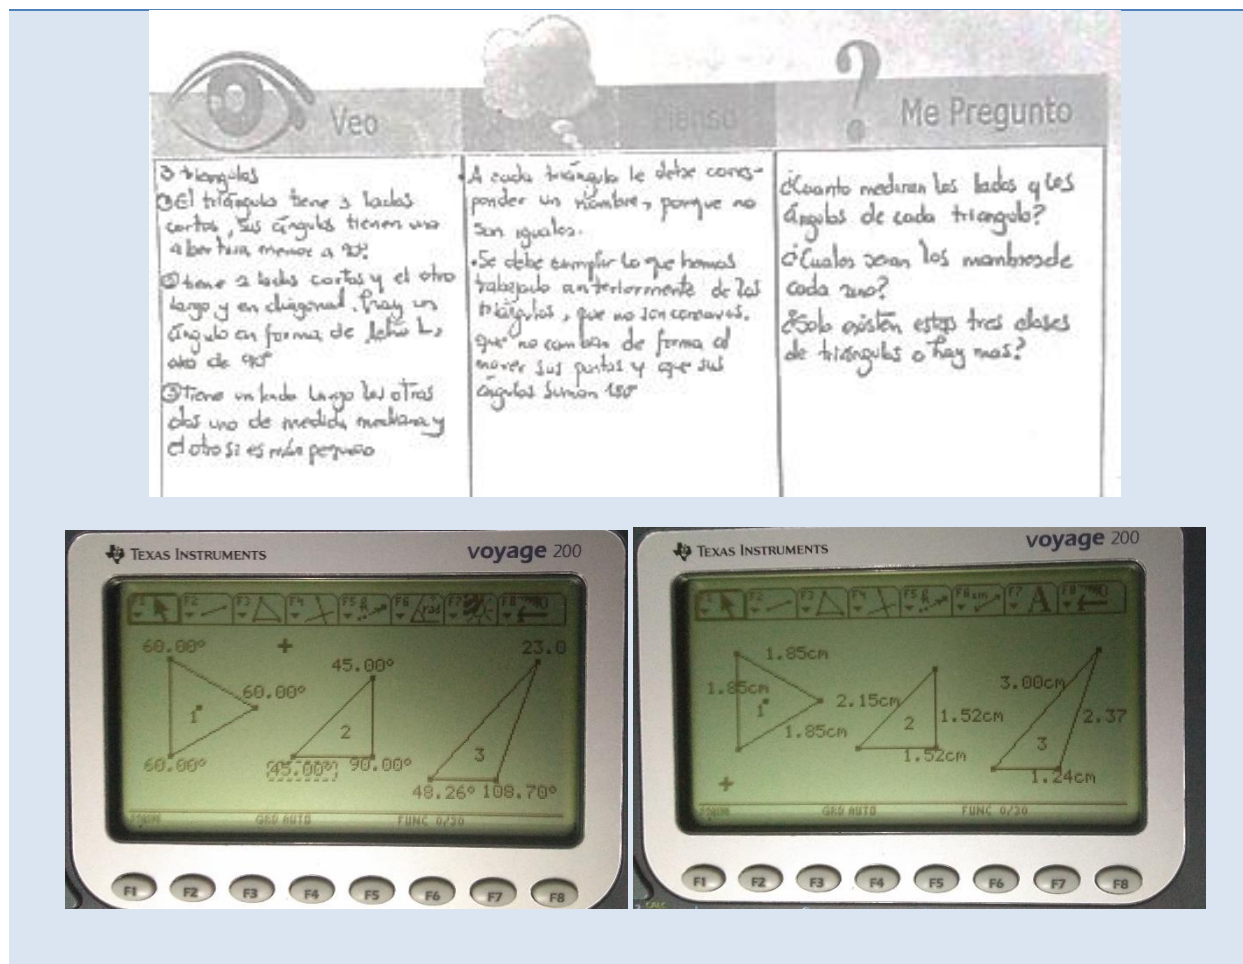 Veo
Pienso
Me Pregunto
3 triangulos
①El triángulo tiene 3 lados
cortos, sus ángulos tienen una
abertura menor a 90°.
②tiene 2 lados cortos y el otro
largo y en diagonal. hay un
ángulo en forma de letra L,
de 90°
③Tiene un lado largo los otros
dos uno de medida mediana y
el otro si es más pequeño
•A cada triángulo le debe corres-
ponder un nombre, porque no
son iguales.
•Se debe cumplir lo que hemos
trabajado anteriormente de los
triángulos, que no son concavos,
que no cambian de forma al
mover sus puntas y que sus
ángulos suman 180
¿Cuanto mediran los lados y los
ángulos de cada triangulo?
¿Cuales seran los nombres de
cada uno?
¿Solo existen estas tres clases
de triángulos o hay mas?
TEXAS INSTRUMENTS
voyage 200
F1 F2 F3 F4 F5 F6 F7 F8
60.00°
45.00°
23.0
60.00°
1
2
3
60.00°
45.00°
90.00°
48.26° 108.70°
GRD AUTO
FUNC 0/30
F1 F2 F3 F4 F5 F6 F7 F8
TEXAS INSTRUMENTS
voyage 200
F1 F2 F3 F4 F5 F6 cm F7 A F8
1.85cm
1.85cm
3.00cm
1
2.15cm
2
1.52cm
2.37
1.85cm
3
1.52cm
1.24cm
GRD AUTO
FUNC 0/30
F1 F2 F3 F4 F5 F6 F7 F8
CALC